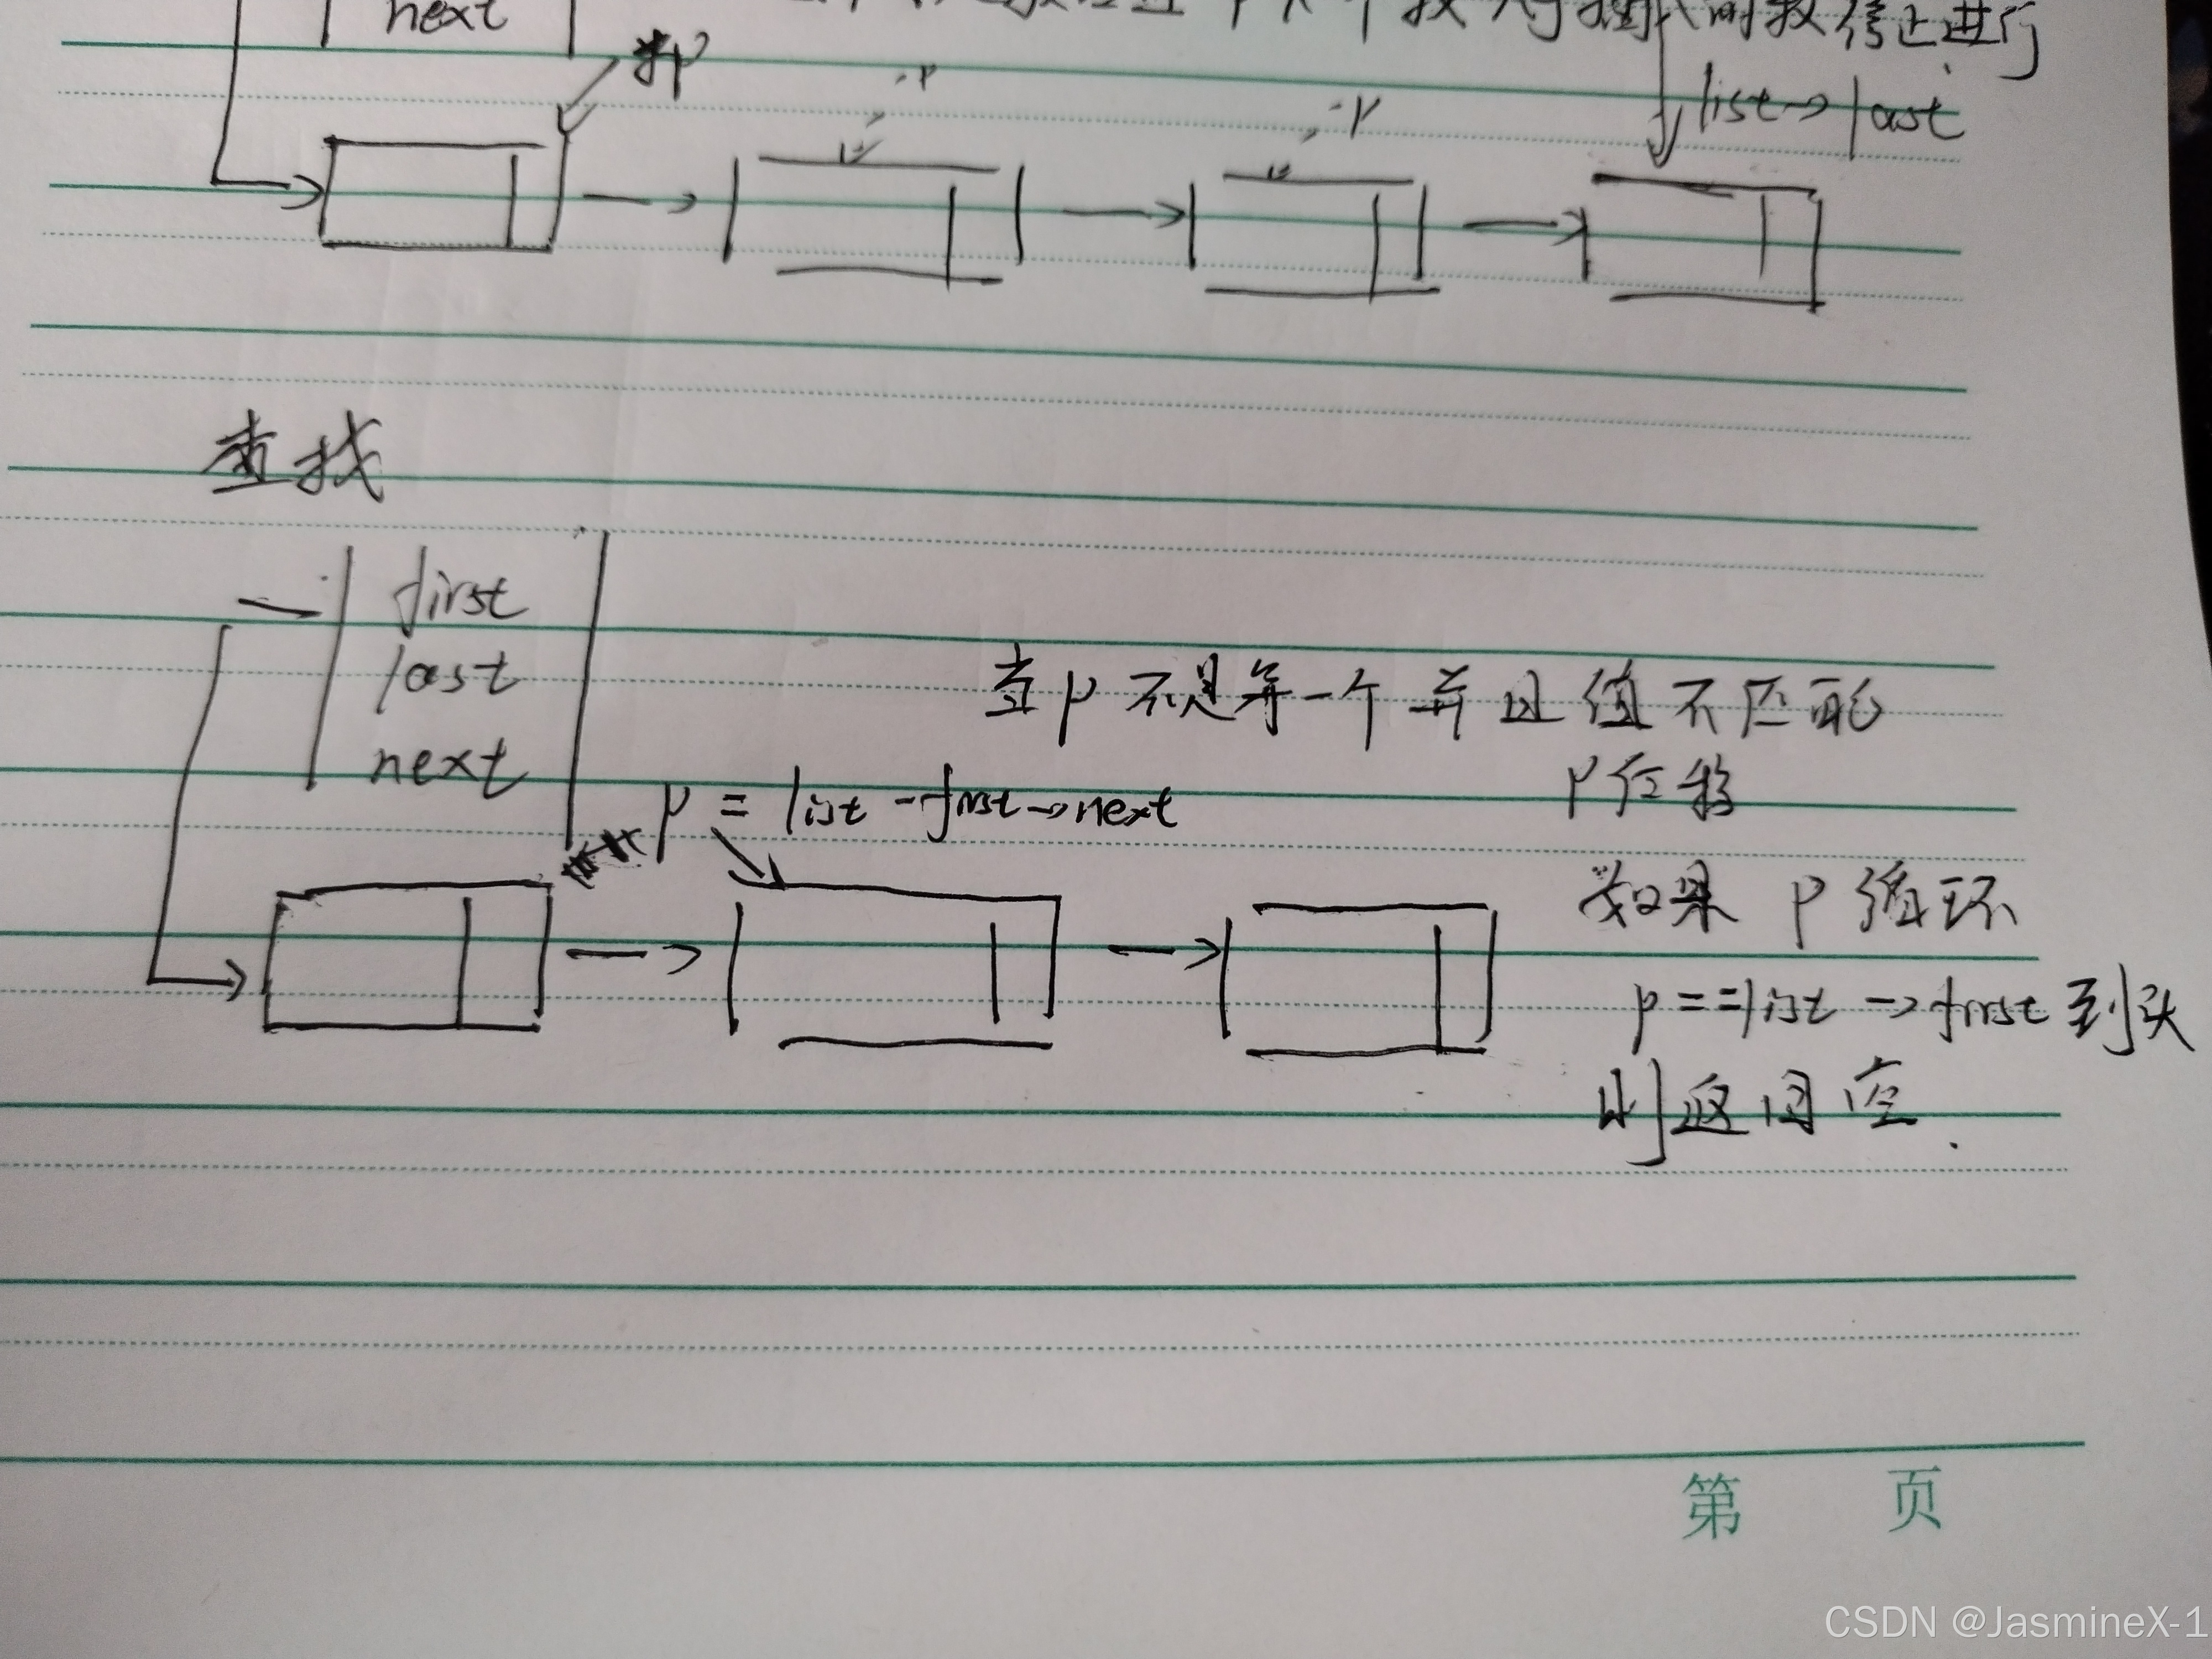 next
停止进行
p
list→last
查找
first
last
next
当p不是第一个并且值不匹配
p位移
p = list-first→next
如果 p循环
p==list→first到头
则返回空.
第 页
CSDN @JasmineX-1